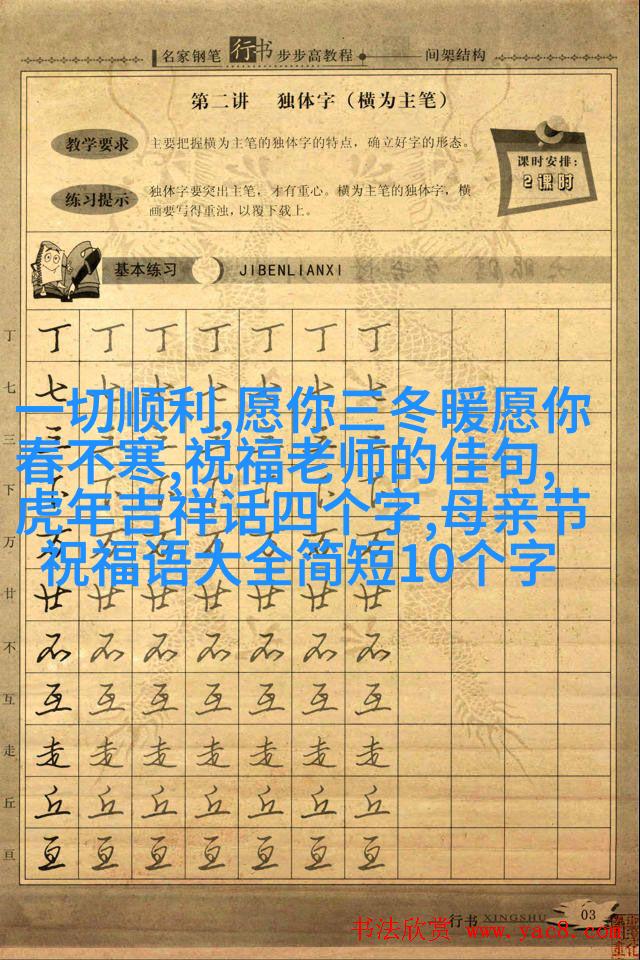 名家钢笔 行书 步步高教程 间架结构
第二讲 独体字（横为主笔）
教学要求 主要把握横为主笔的独体字的特点，确立好字的形态。
课时安排：
2课时
练习提示 独体字要突出主笔，才有重心。横为主笔的独体字，横
画要写得重浊，以覆下载上。
基本练习 JIBENLIANXI
丁 丁 丁 丁 丁 丁 丁 丁
七 七 七 七 七 七 七 七
一切顺利,愿你三冬暖愿你
春不寒,祝福老师的佳句,
虎年吉祥话四个字,母亲节
祝福语大全简短10个字
三
下
万
廿 廿 廿 廿 廿 廿 廿 廿
不 不 不 不 不 不 不 不
互 互 互 互 互 互 互 互
走 走 走 走 走 走 走 走
丘 丘 丘 丘 丘 丘 丘 丘
亘 亘 亘 亘 亘 亘 亘 亘
行书 XINGSHU 03
书法欣赏 www.yac8.com